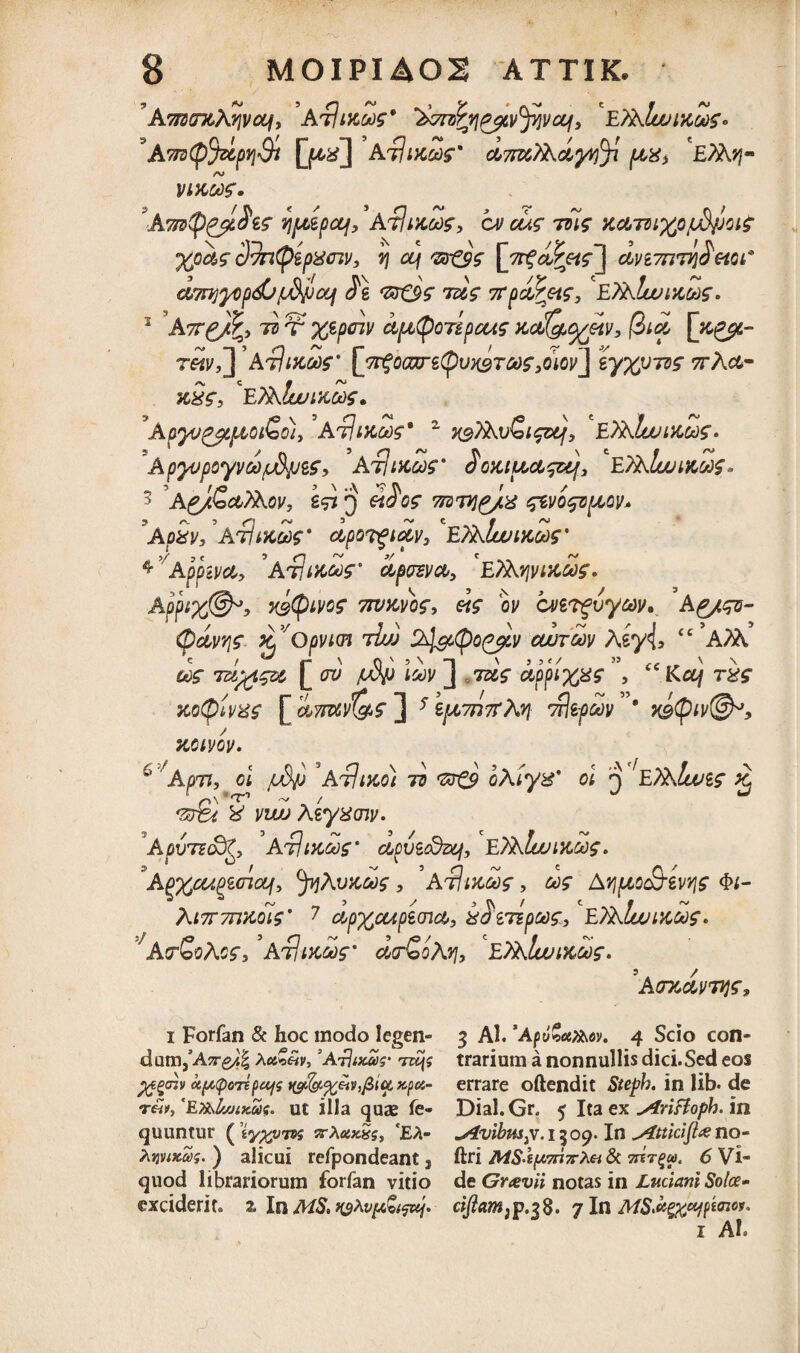 8 ΜΟΙΡΙΔΟΣ ΑΤΤΙΚ.
Ἀποσκλῆναι, Ἀττικῶς· ἀποξηρανθῆναι, Ἑλληνικῶς.
Ἀποφθάρηθι [μȣ] Ἀττικῶς· ἀπαλλάγηθι μȣ, Ἑλλη-
νικῶς.
Ἀποφράδες ἡμέραι, Ἀττικῶς, ἐν αἷς τοῖς κατοιχομένοις
χοὰς ἐπιφέρȣσιν, ἢ αἱ πρὸς [πράξεις] ἀνεπιτήδειοι·
ἀπηγορευμέναι δὲ πρὸς τὰς πράξεις, Ἑλληνικῶς.
1 Ἀπρὶξ, τὸ τ χερσὶν ἀμφοτέραις κατασχεῖν, βίᾳ [κρα-
τεῖν,] Ἀττικῶς· [προσπεφυκότως, οἷον] ἔγχυτος πλα-
κȣς, Ἑλληνικῶς.
Ἀργυραμοιβοὶ, Ἀττικῶς· 2 κολλυβισταὶ, Ἑλληνικῶς.
Ἀργυρογνώμονες, Ἀττικῶς· δοκιμασταὶ, Ἑλληνικῶς.
3 Ἀρίβαλλον, ἔστι ἢ εἶδος ποτηρίȣ στενόστομον.
Ἀρȣν, Ἀττικῶς· ἀροτριᾶν, Ἑλληνικῶς·
4 Ἄρρενα, Ἀττικῶς· ἄρσενα, Ἑλληνικῶς.
Ἀρριχος, κόφινος πυκνὸς, εἰς ὃν ἐνετρύγων. Ἀριστο-
φάνης καὶ Ὄρνισι τὴν διαφορὰν αὐτῶν λέγει, “Ἀλλ’
ὡς τάχιστα [σὺ μὲν ἰὼν] τὰς ἀρρίχȣς”, “Καὶ τȣς
κοφίνȣς [ἅπαντας] 5 ἐμπίπλη πτερῶν”· κόφινος,
κοινόν.
6 Ἄρτι, οἱ μὲν Ἀττικοὶ τὸ πρὸ ὀλίγȣ· οἱ ἢ Ἕλληνες καὶ
περὶ τȣ νῦν λέγȣσιν.
Ἀρύτεσθαι, Ἀττικῶς· ἀρύεσθαι, Ἑλληνικῶς.
Ἀρχαιρεσίαι, θηλυκῶς, Ἀττικῶς, ὡς Δημοσθένης Φι-
λιππικοῖς· 7 ἀρχαιρέσια, ȣδετέρως, Ἑλληνικῶς.
Ἄσβολος, Ἀττικῶς· ἀσβόλη, Ἑλληνικῶς.
Ἀσκάντης,
1 Forſan & hoc modo legen-
dum, Ἀπρὶξ λαβεῖν, Ἀττικῶς· ταῖς
χερσὶν ἀμφοτέραις κατασχεῖν, βίᾳ κρα-
τεῖν, Ἑλληνικῶς. ut illa quæ ſe-
quuntur (ἔγχυτος πλακȣς, Ἑλ-
ληνικῶς.) alicui reſpondeant,
quod librariorum forſan vitio
exciderit. 2 In MS. κολυμβισταὶ.
3 Al. Ἀρύβαλλον. 4 Scio con-
trarium à nonnullis dici. Sed eos
errare oſtendit Steph. in lib. de
Dial. Gr. 5 Ita ex Ariſtoph. in
Avibus, v. 1309. In Atticiſtæ no-
ſtri MS. ἐμπίπλει & πέτρω. 6 Vi-
de Grævii notas in Luciani Solœ-
ciſtam, p. 38. 7 In MS. ἀρχαιρέσιον.
1 Al.